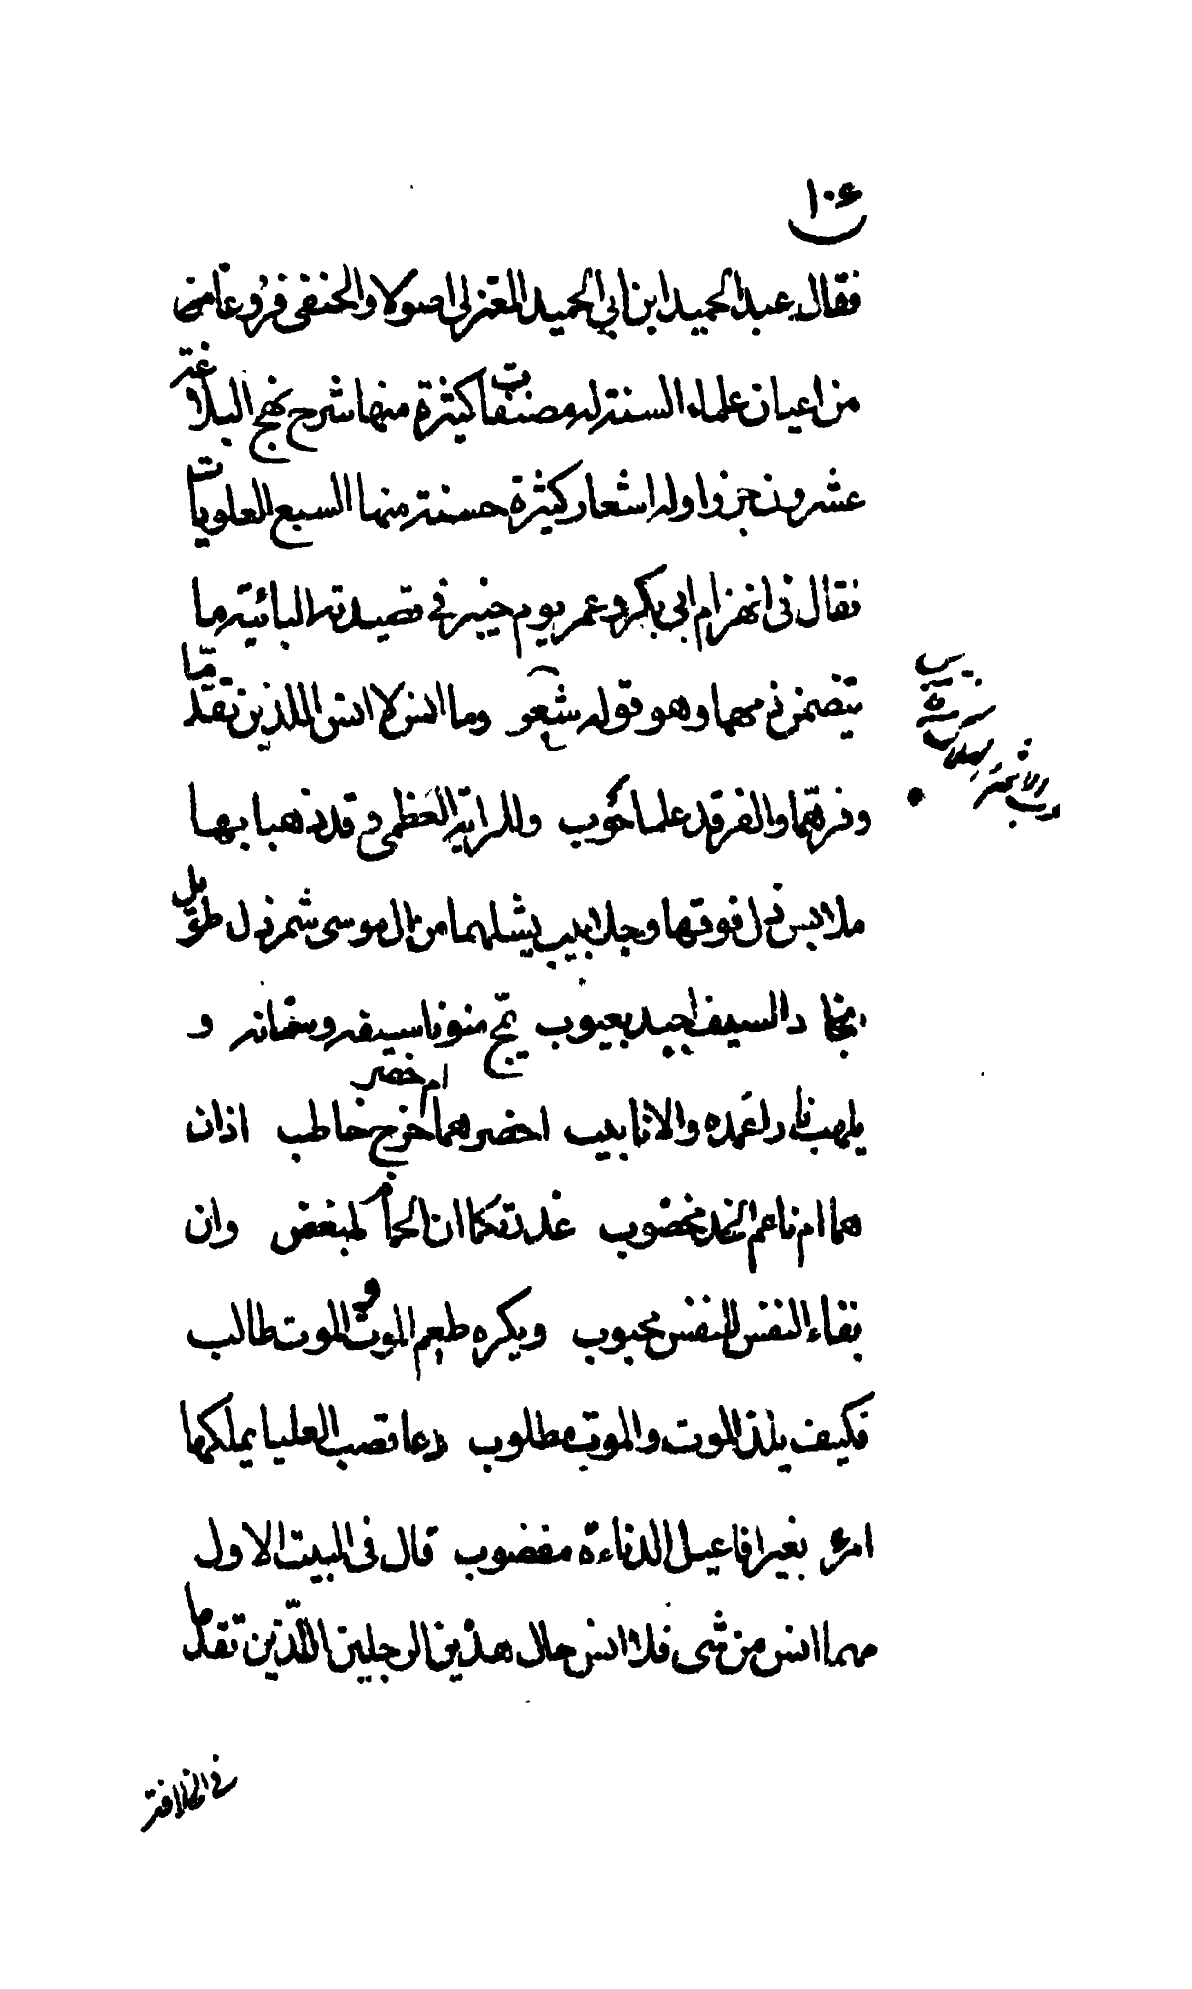 ١٠٤
فقال عبد الحميد ابن ابي الحميد المعتزلي اصولا والحنفي فروعا من
من اعيان علماء السنة له مصنفات كثيرة منها شرح نهج البلاغة
عشرون جزوا وله اشعار كثيرة حسنة منها السبع العلويات
فقال في انهزام ابي بكر و عمر يوم خيبر في قصيدته البائية ما
يتضمن ذمهما وهو قوله شعر وما انس لا انس اللذين تقدما
وفرهما والفر قد علما حوب وللراية العظمى و قد ذهبا بها
ملابس ذل فوقها وجلابيب يشلهما من ال موسى شمرذل طويل
نجاد السيف اجيد يعبوب يمج منونا سيفه وسنانه و
يلهب نارا غمده والانابيب احضرهما ام حضر اخرج خاطب اذان
هما ام ناعم الخد مخضوب عذرتكما ان الحمام لمبغض وان
بقاء النفس للنفس محبوب ويكره طعم الموت و الموت طالب
فكيف يلذ الموت والموت مطلوب دعا قصب العليا يملكها
امرء بغير افاعيل الدناءة مقضوب قال في البيت الاول
مهما انس من شى فلا انس حال هذين الرجلين اللذين تقدما
في الخلافة